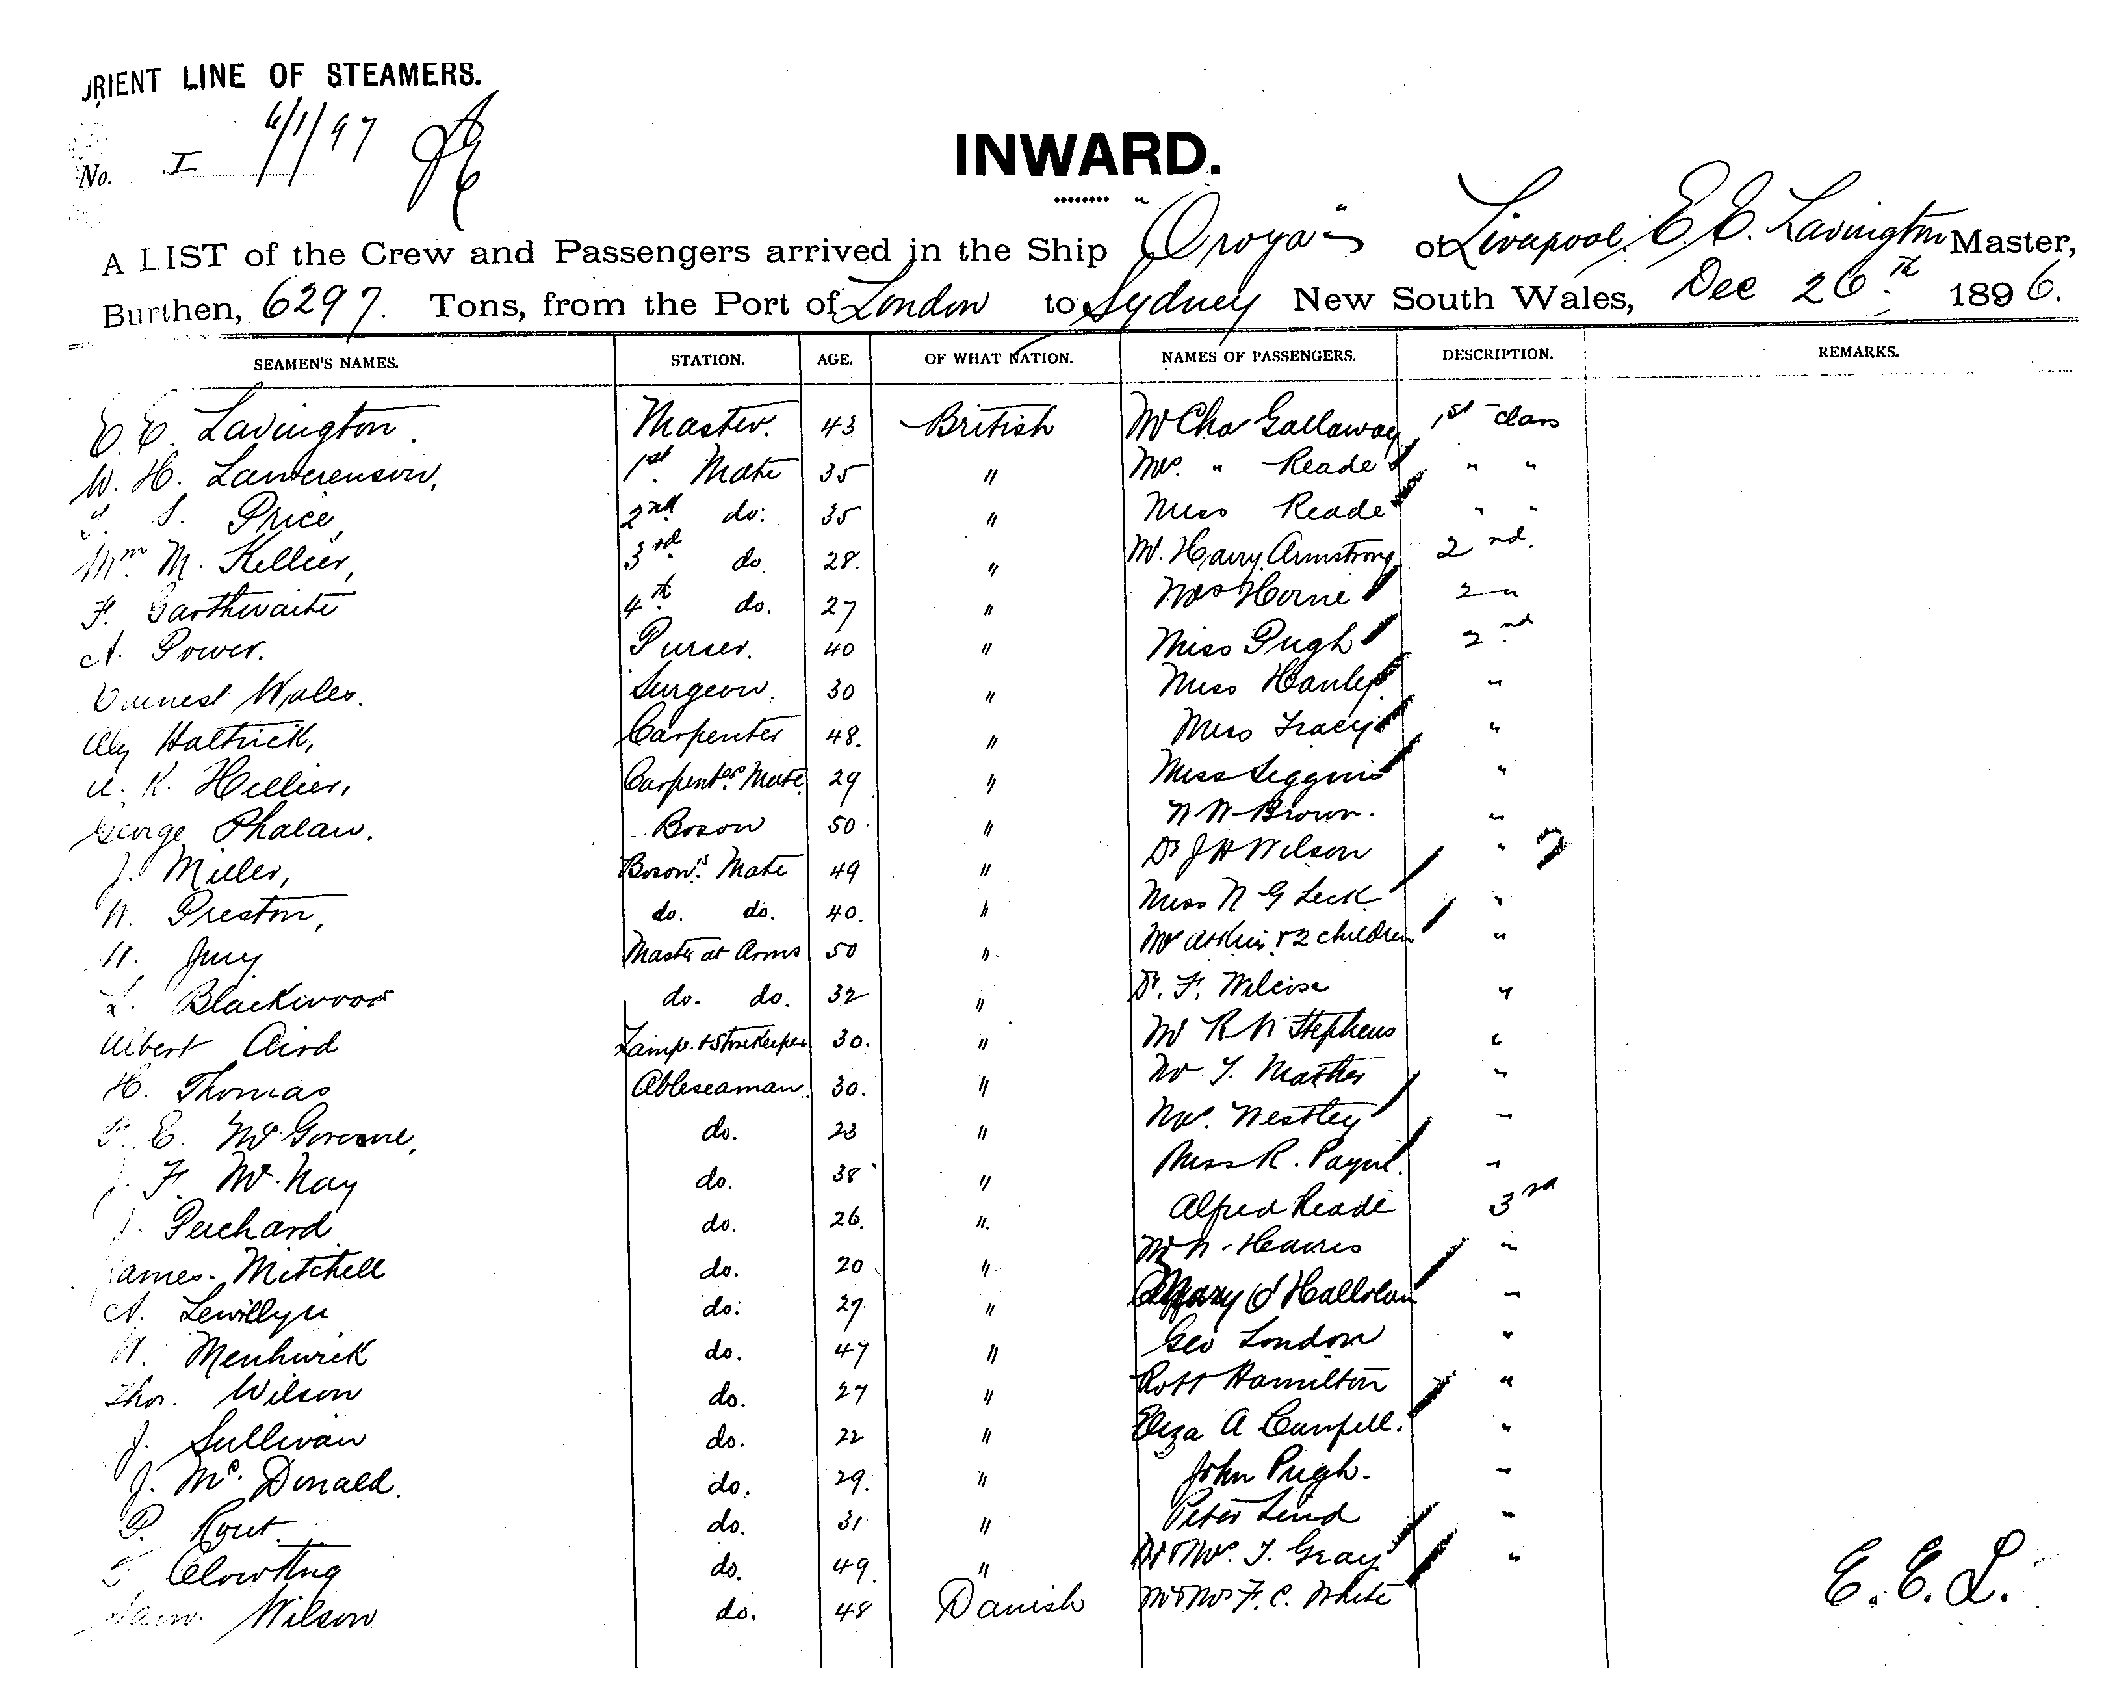 ORIENT LINE OF STEAMERS.
6/1/97
No. I
INWARD.
A LIST of the Crew and Passengers arrived in the Ship "Oroya" of Liverpool, E. E. Lavington Master,
Burthen, 6297. Tons, from the Port of London to Sydney New South Wales, Dec 26th 1896.
SEAMEN'S NAMES. STATION. AGE. OF WHAT NATION. NAMES OF PASSENGERS. DESCRIPTION. REMARKS.
E. E. Lavington. Master. 43 British Mr Chas Gallaway 1st class
W. H. Lawrenson, 1st. Mate 35 " Mrs. " Reade " "
S. Price, 2nd do. 35 " Miss Reade " "
Wm. M. Kellier, 3rd do. 28. " Mr. Harry Armstrong 2nd.
F. Garthwaite 4th do. 27 " Mrs Horne 2 "
A. Power. Purser. 40 " Miss Pugh 2nd
Ernest Wales. Surgeon. 30 " Miss Hanley "
Aly Haltrick, Carpenter 48. " Miss Tracey "
R. Hellier, Carpentrs. Mate 29 " Miss Liggins "
George Phalan. Boson 50 " Brown. "
J. Miller, Boson's Mate 49 " Dr J H Wilson "
W. Preston, do. do. 40. " Miss N G Leck "
Jury Master at Arms 50 " & 2 children "
L. Blackwood do. do. 32 " Dr. F. "
Albert Aird Lamp. & Storekeeper 30. " Mr R N Stephens "
H. Thomas Ableseaman. 30. " Mr T. Mather "
E. do. 23 " Mrs. Westley "
J. F. McNay do. 38 " Miss R. Payne. "
J. Perchard do. 26. " Alfred Reade 3rd
James. Mitchell do. 20 " Mr "
A. Lewillyn do. 27. " Mary O'Halloran "
Menhurick do. 47 " Geo London "
Thos. Wilson do. 27 " Robt Hamilton "
J. Sullivan do. 22 " Eliza A "
J. Mc. Donald. do. 29. " John Pugh. "
P. Rout. do. 31 " Peter Lind "
do. 49. " Mr & Mrs. T. Gray "
Wilson do. 48 Danish Mr & Mrs F. C. White
E. E. L.